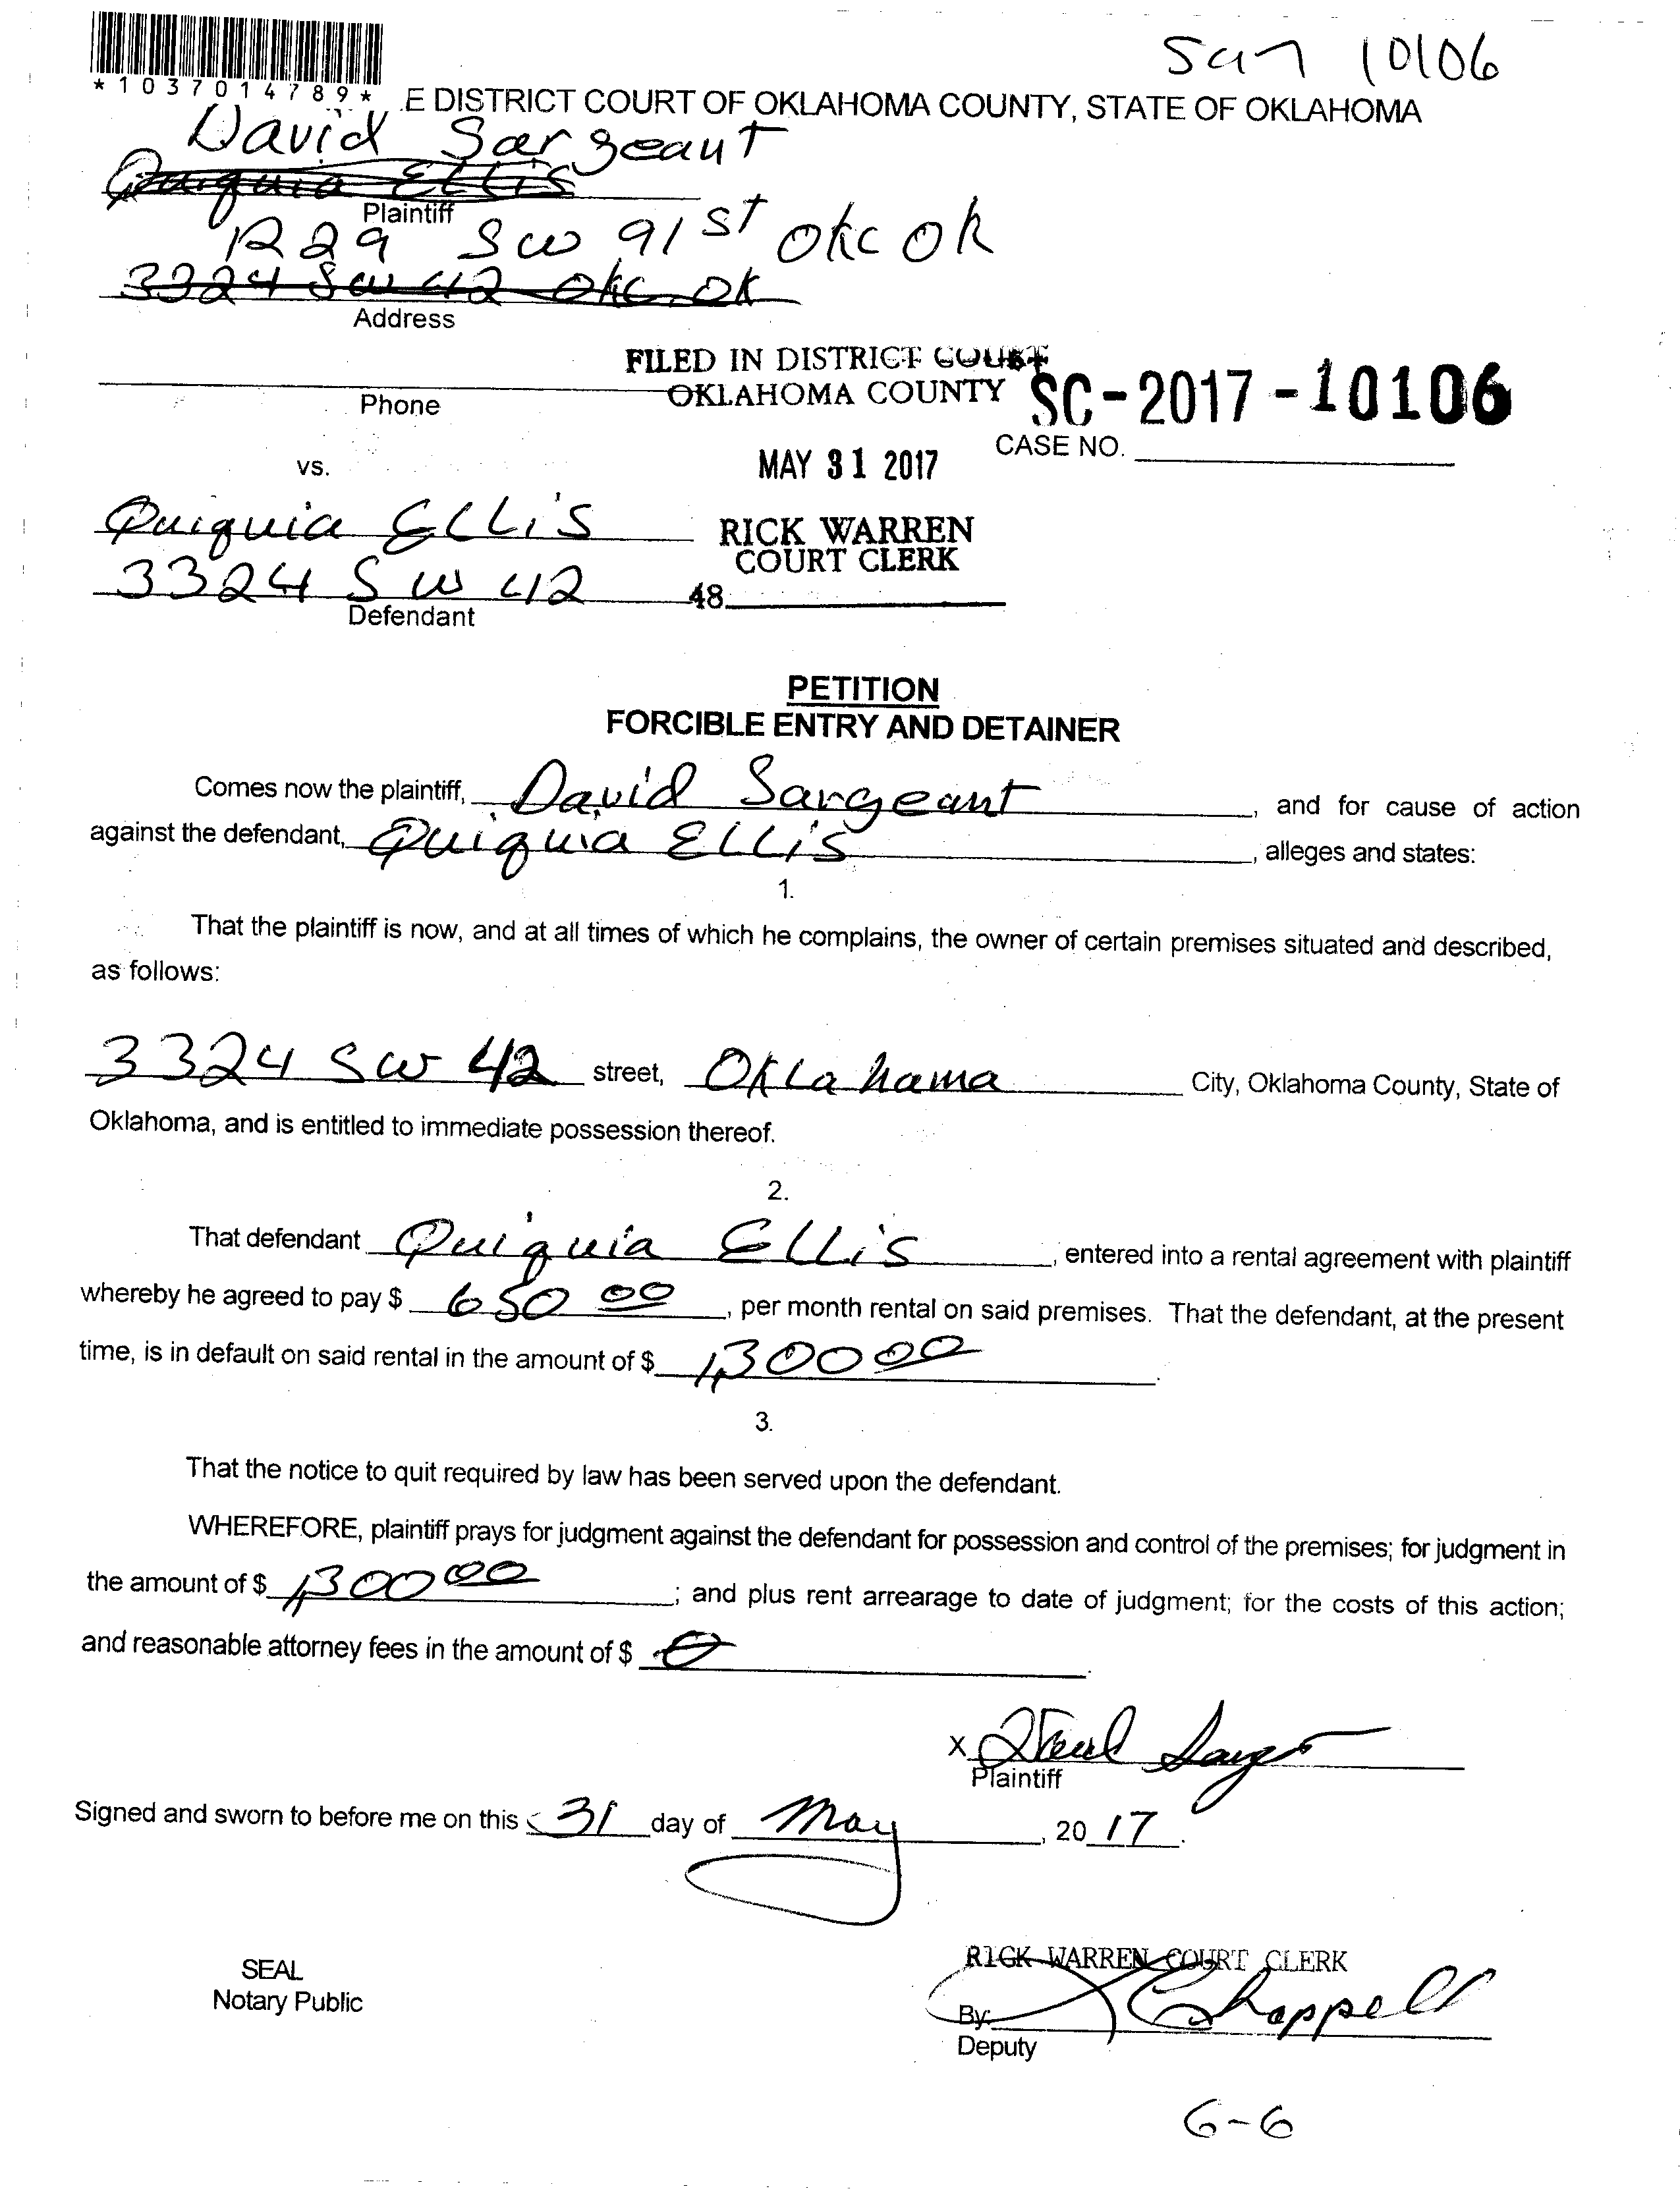 Sc17 10106
*1037014789*
.E DISTRICT COURT OF OKLAHOMA COUNTY, STATE OF OKLAHOMA
David Sargeant
Quiquia ELLiS
Plaintiff
1229 SW 91st OKC OK
3324 SW 42 OKC OK
Address
FILED IN DISTRICT COURT
OKLAHOMA COUNTY
SC-2017-10106
Phone
CASE NO.
vs.
MAY 31 2017
Quiquia ELLiS
RICK WARREN
COURT CLERK
3324 SW 42
48
Defendant
PETITION
FORCIBLE ENTRY AND DETAINER
Comes now the plaintiff, David Sargeant, and for cause of action
against the defendant, Quiquia ELLiS, alleges and states:
1.
That the plaintiff is now, and at all times of which he complains, the owner of certain premises situated and described,
as follows:
3324 SW 42 street, OKLahama City, Oklahoma County, State of
Oklahoma, and is entitled to immediate possession thereof.
2.
That defendant Quiquia ELLiS, entered into a rental agreement with plaintiff
whereby he agreed to pay $ 650 00, per month rental on said premises. That the defendant, at the present
time, is in default on said rental in the amount of $ 1,300 00.
3.
That the notice to quit required by law has been served upon the defendant.
WHEREFORE, plaintiff prays for judgment against the defendant for possession and control of the premises; for judgment in
the amount of $ 1,300 00; and plus rent arrearage to date of judgment; for the costs of this action;
and reasonable attorney fees in the amount of $ 0.
X
Plaintiff
Signed and sworn to before me on this 31 day of May, 2017.
SEAL
Notary Public
RICK WARREN COURT CLERK
By: Chappell
Deputy
6-6